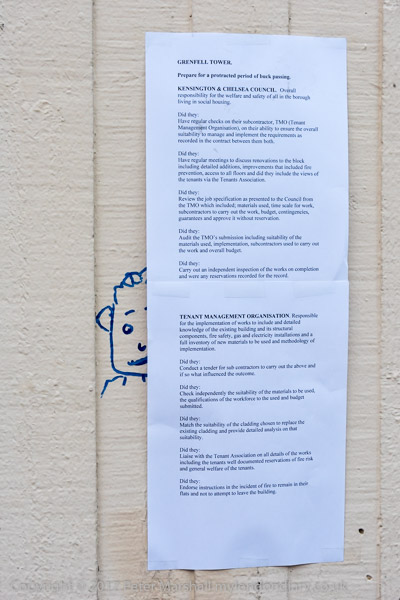 GRENFELL TOWER.
Prepare for a protracted period of buck passing.
KENSINGTON & CHELSEA COUNCIL. Overall
responsibility for the welfare and safety of all in the borough
living in social housing.
Did they:
Have regular checks on their subcontractor, TMO (Tenant
Management Organisation), on their ability to ensure the overall
suitability to manage and implement the requirements as
recorded in the contract between them both.
Did they:
Have regular meetings to discuss renovations to the block
including detailed additions, improvements that included fire
prevention, access to all floors and did they include the views of
the tenants via the Tenants Association.
Did they:
Review the job specification as presented to the Council from
the TMO which included; materials used, time scale for work,
subcontractors to carry out the work, budget, contingencies,
guarantees and approve it without reservation.
Did they:
Audit the TMO's submission including suitability of the
materials used, implementation, subcontractors used to carry out
the work and overall budget.
Did they:
Carry out an independent inspection of the works on completion
and were any reservations recorded for the record.
TENANT MANAGEMENT ORGANISATION. Responsible
for the implementation of works to include and detailed
knowledge of the existing building and its structural
components, fire safety, gas and electricity installations and a
full inventory of new materials to be used and methodology of
implementation.
Did they:
Conduct a tender for sub contractors to carry out the above and
if so what influenced the outcome.
Did they:
Check independently the suitability of the materials to be used,
the qualifications of the workforce to the used and budget
submitted.
Did they:
Match the suitability of the cladding chosen to replace the
existing cladding and provide detailed analysis on that
suitability.
Did they:
Liaise with the Tenant Association on all details of the works
including the tenants well documented reservations of fire risk
and general welfare of the tenants.
Did they:
Endorse instructions in the incident of fire to remain in their
flats and not to attempt to leave the building.
Copyright © 2017 Peter Marshall mylondondiary.co.uk